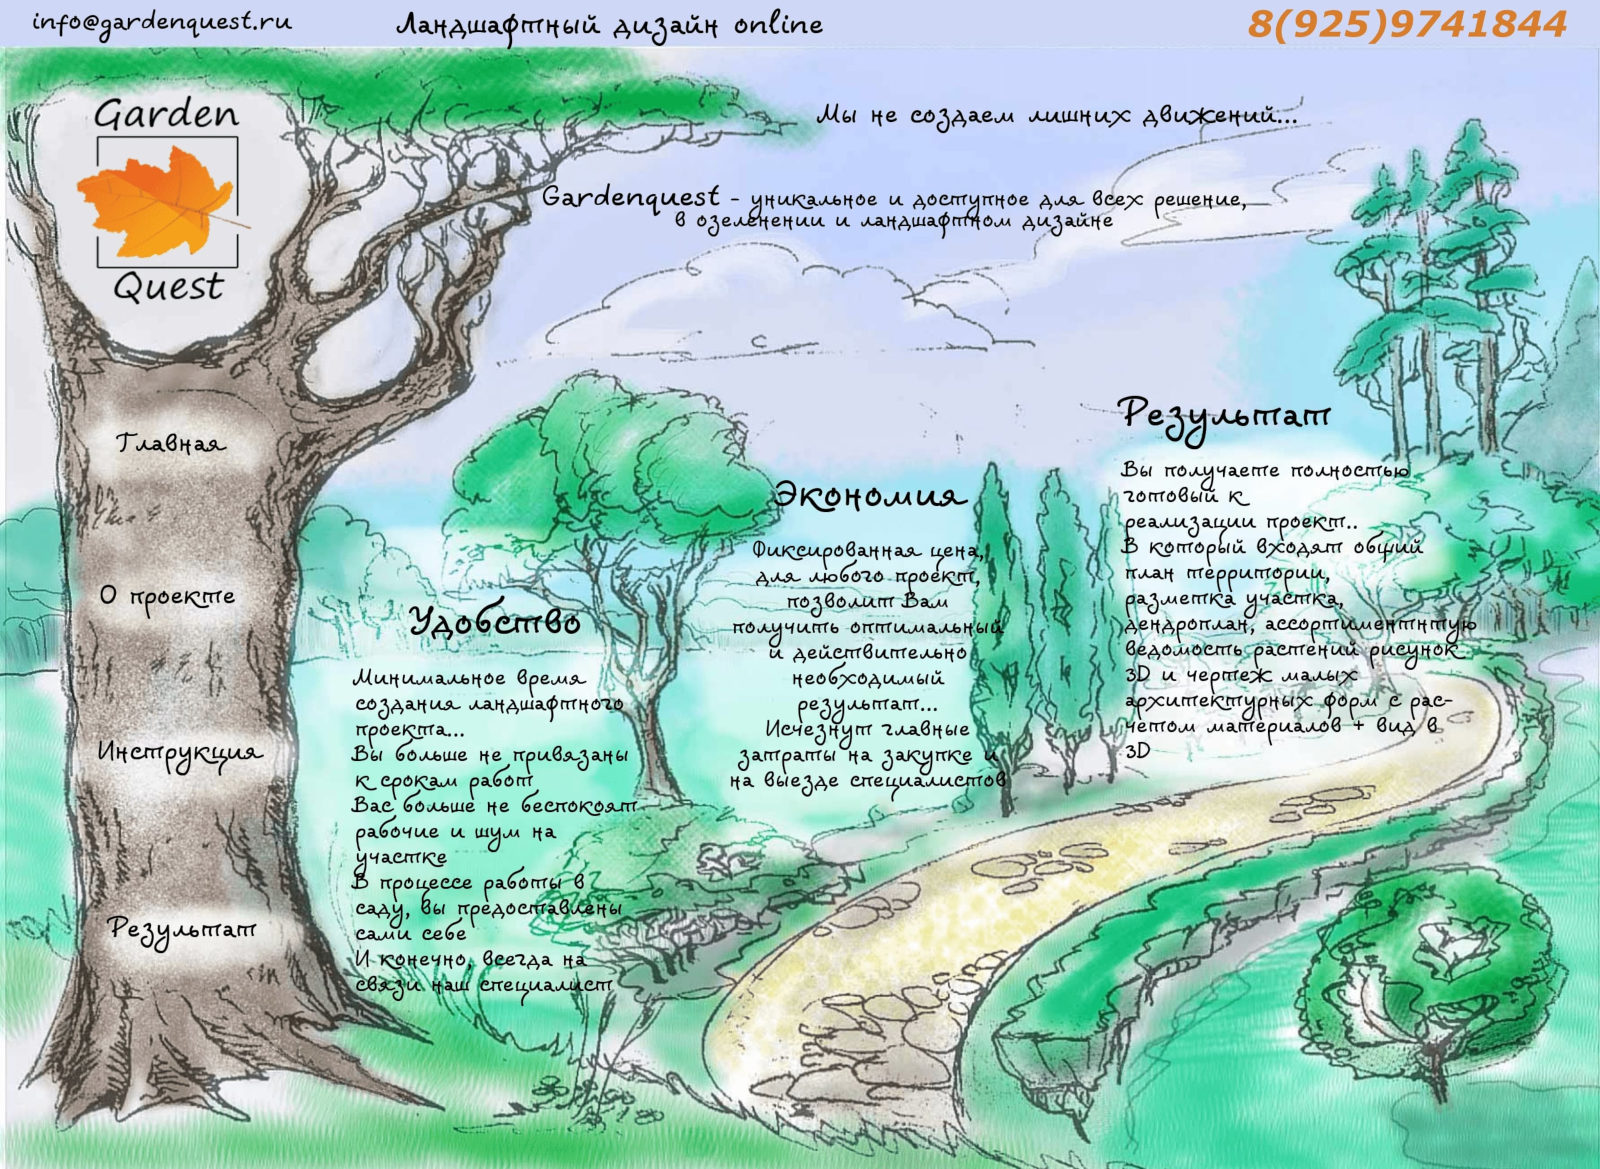 info@gardenquest.ru
Ландшафтный дизайн online
8(925)9741844
Garden
Quest
Мы не создаем лишних движений...
Gardenquest - уникальное и доступное для всех решение,
в озеленении и ландшафтном дизайне
Главная
О проекте
Инструкция
Результат
Удобство
Минимальное время
создания ландшафтного
проекта...
Вы больше не привязаны
к срокам работ
Вас больше не беспокоят
рабочие и шум на
участке
В процессе работы в
саду, вы предоставлены
сами себе
И конечно, всегда на
связи наш специалист
Экономия
Фиксированная цена,
для любого проект,
позволит Вам
получить оптимальный
и действительно
необходимый
результат...
Исчезнут главные
затраты на закупке и
на выезде специалистов
Результат
Вы получаете полностью
готовый к
реализации проект..
В который входят общий
план территории,
разметка участка,
дендроплан, ассортиментнтую
ведомость растений рисунок
3D и чертеж малых
архитектурных форм с рас-
четом материалов + вид в
3D